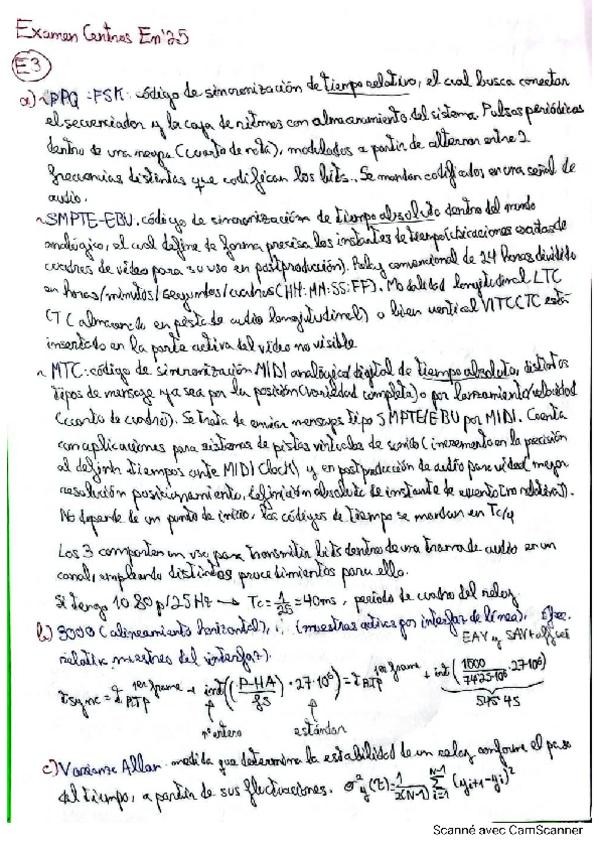 Examen Centros En'25
E3
a) ~ PPQ: FSK: código de sincronización de tiempo relativo, el cual busca conectar
el secuenciador y la caja de ritmos con almacenamiento del sistema. Pulsos periódicos
dentro de una negra (cuarto de nota), modulados a partir de alternar entre 2
frecuencias distintas que codifican los bits. Se mandan codificados en una señal de
audio.
~ SMPTE-EBU: código de sincronización de tiempo absoluto dentro del mundo
analógico, el cual define de forma precisa los instantes de tiempo (ubicaciones exactas de
cuadros de vídeo para su uso en postproducción). Reloj convencional de 24 horas dividido
en horas/minutos/segundos/cuadros (HH:MM:SS:FF). Modalidad longitudinal LTC
(TC almacenado en pista de audio longitudinal) o bien vertical VITC (TC está
insertado en la parte activa del vídeo no visible
~ MTC: código de sincronización MIDI analógico digital de tiempo absoluto, distintos
tipos de mensaje ya sea por la posición (variedad completa) o por lanzamiento/velocidad
(cuarto de cuadro). Se trata de enviar mensajes tipo SMPTE/EBU por MIDI. Cuenta
con aplicaciones para sistemas de pistas virtuales de sonido (incremento en la precisión
al definir tiempos ante MIDI Clock) y en postproducción de audio para vídeo (mayor
resolución posicionamiento, definición absoluta de instante de evento (no relativa)).
No depende de un punto de inicio, los códigos de tiempo se mandan en Tc/4
Los 3 comparten un uso para transmitir bits dentro de una trama de audio en un
canal, empleando distintos procedimientos para ello.
Si tengo 1080p/25Hz → Tc = 1/25 = 40ms, periodo de cuadro del reloj
b) (alineamiento horizontal), (muestras activas por interfaz de línea),
EAV y SAV +
relativa muestras del interfaz).
tsync = t PTP 1er frame + int((P-HA / fs) · 27·10⁶) = t PTP 1er frame + int(/ 74'25·10⁶ · 27·10⁶)
nº entero estándar 545'45
c) Varianza Allan: medida que determina la estabilidad de un reloj conforme el paso
del tiempo, a partir de sus fluctuaciones. σ²y(τ) = 1/2(N-1) Σ N-1 i=1 (yi+1 - yi)²
Scanné avec CamScanner